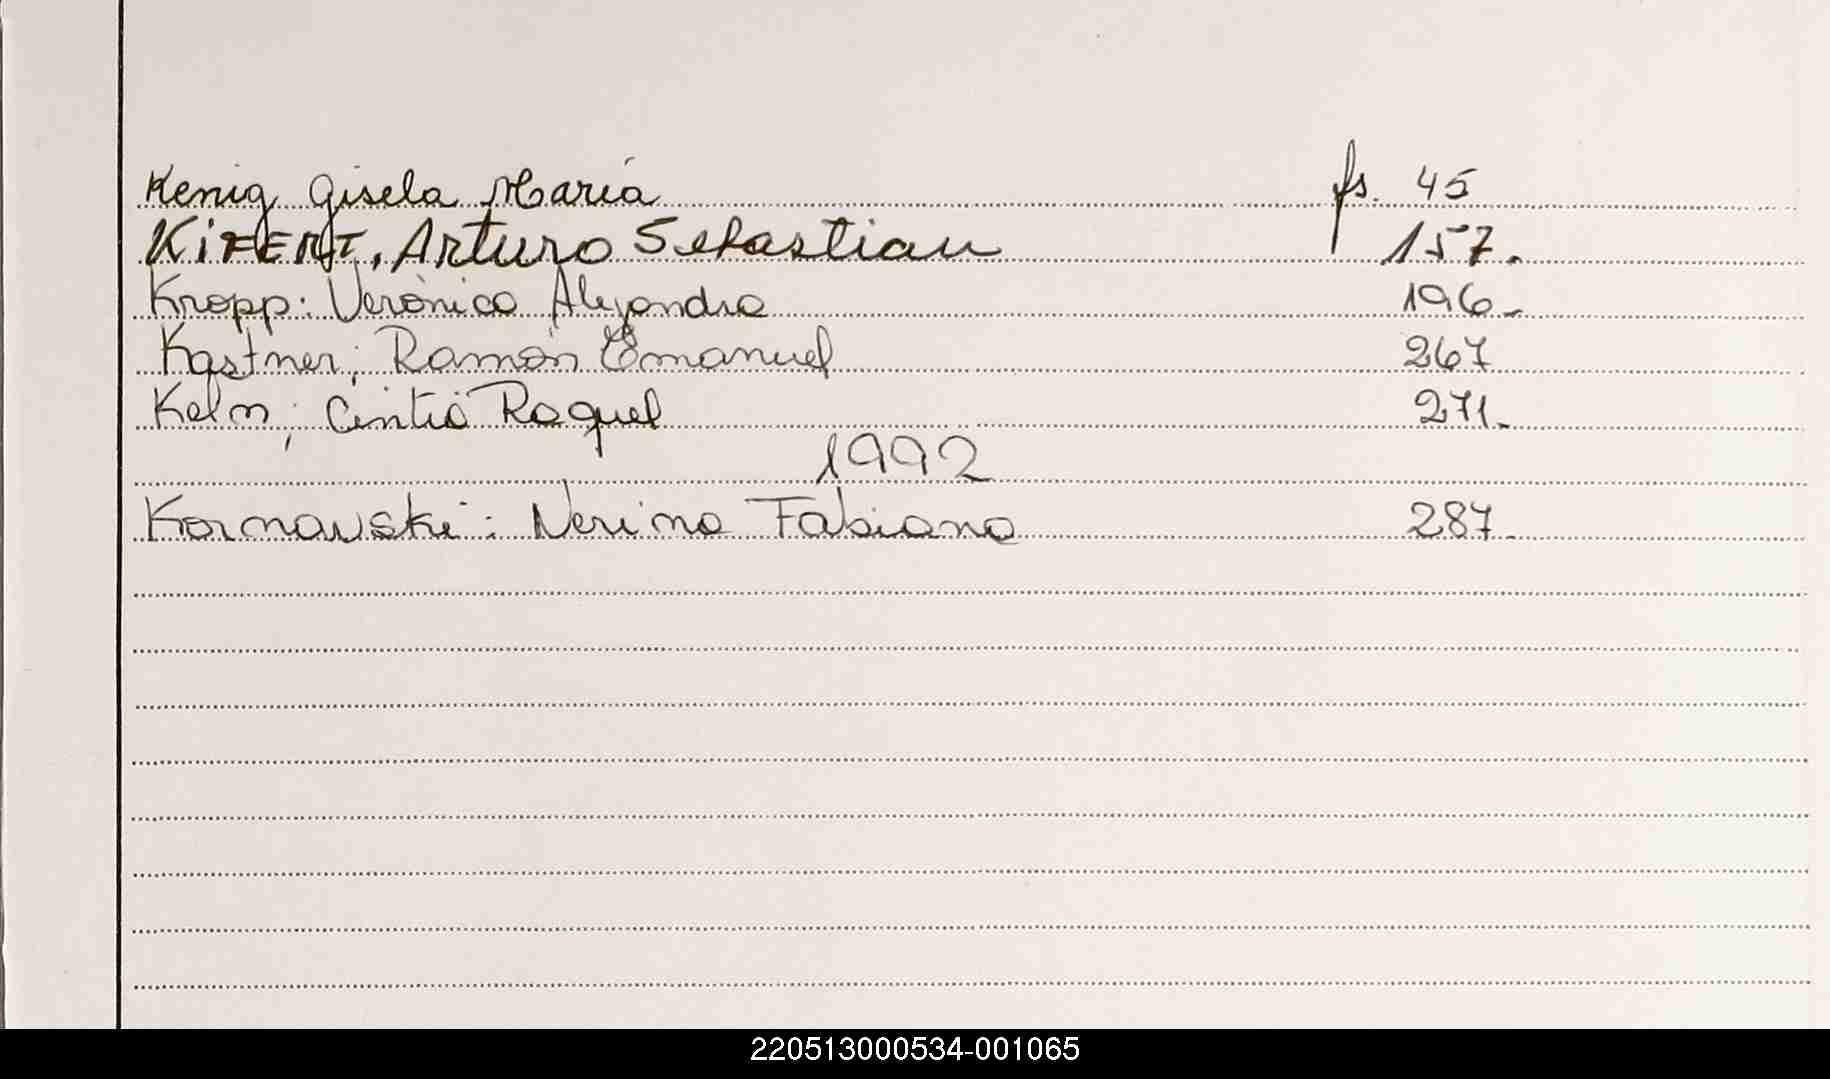 Kenig Gisela María fs. 45
KiFERT, Arturo Sebastian 157.
Kropp: Verónica Alejandra 196-
Kastner; Ramón Emanuel 267
Kelm; Cintia Raquel 271.
1992
Kornowski: Nerina Fabiana 287.
220513000534-001065